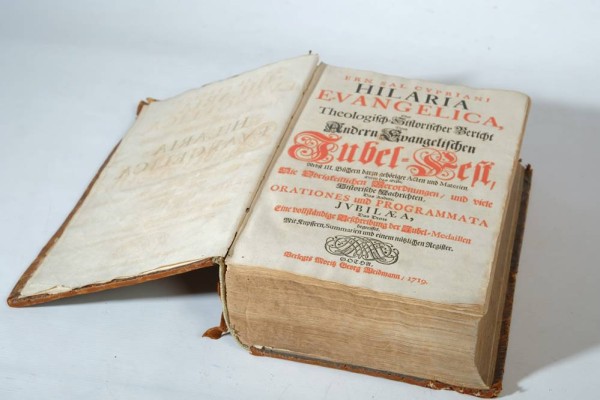 ERN. SAL. CYPRIANI
HILARIA
EVANGELICA,
Oder
Theologisch-Historischer Bericht
Vom
Andern Evangelischen
Jubel-Fest,
Nebst III. Büchern darzu gehöriger Acten und Materien
Deren das Erste,
Die Obrigkeitlichen Verordnungen, und viele
Historische Nachrichten,
Das Andere,
ORATIONES und PROGRAMMATA
JVBILÆA,
Das Dritte
Eine vollständige Beschreibung der Jubel-Medaillen
begreiffet.
Mit Kupffern, Summarien und einem nützlichen Register.
GOTHA,
Verlegts Moritz Georg Weidmann, 1719.
HILARIA
EVANGELICA